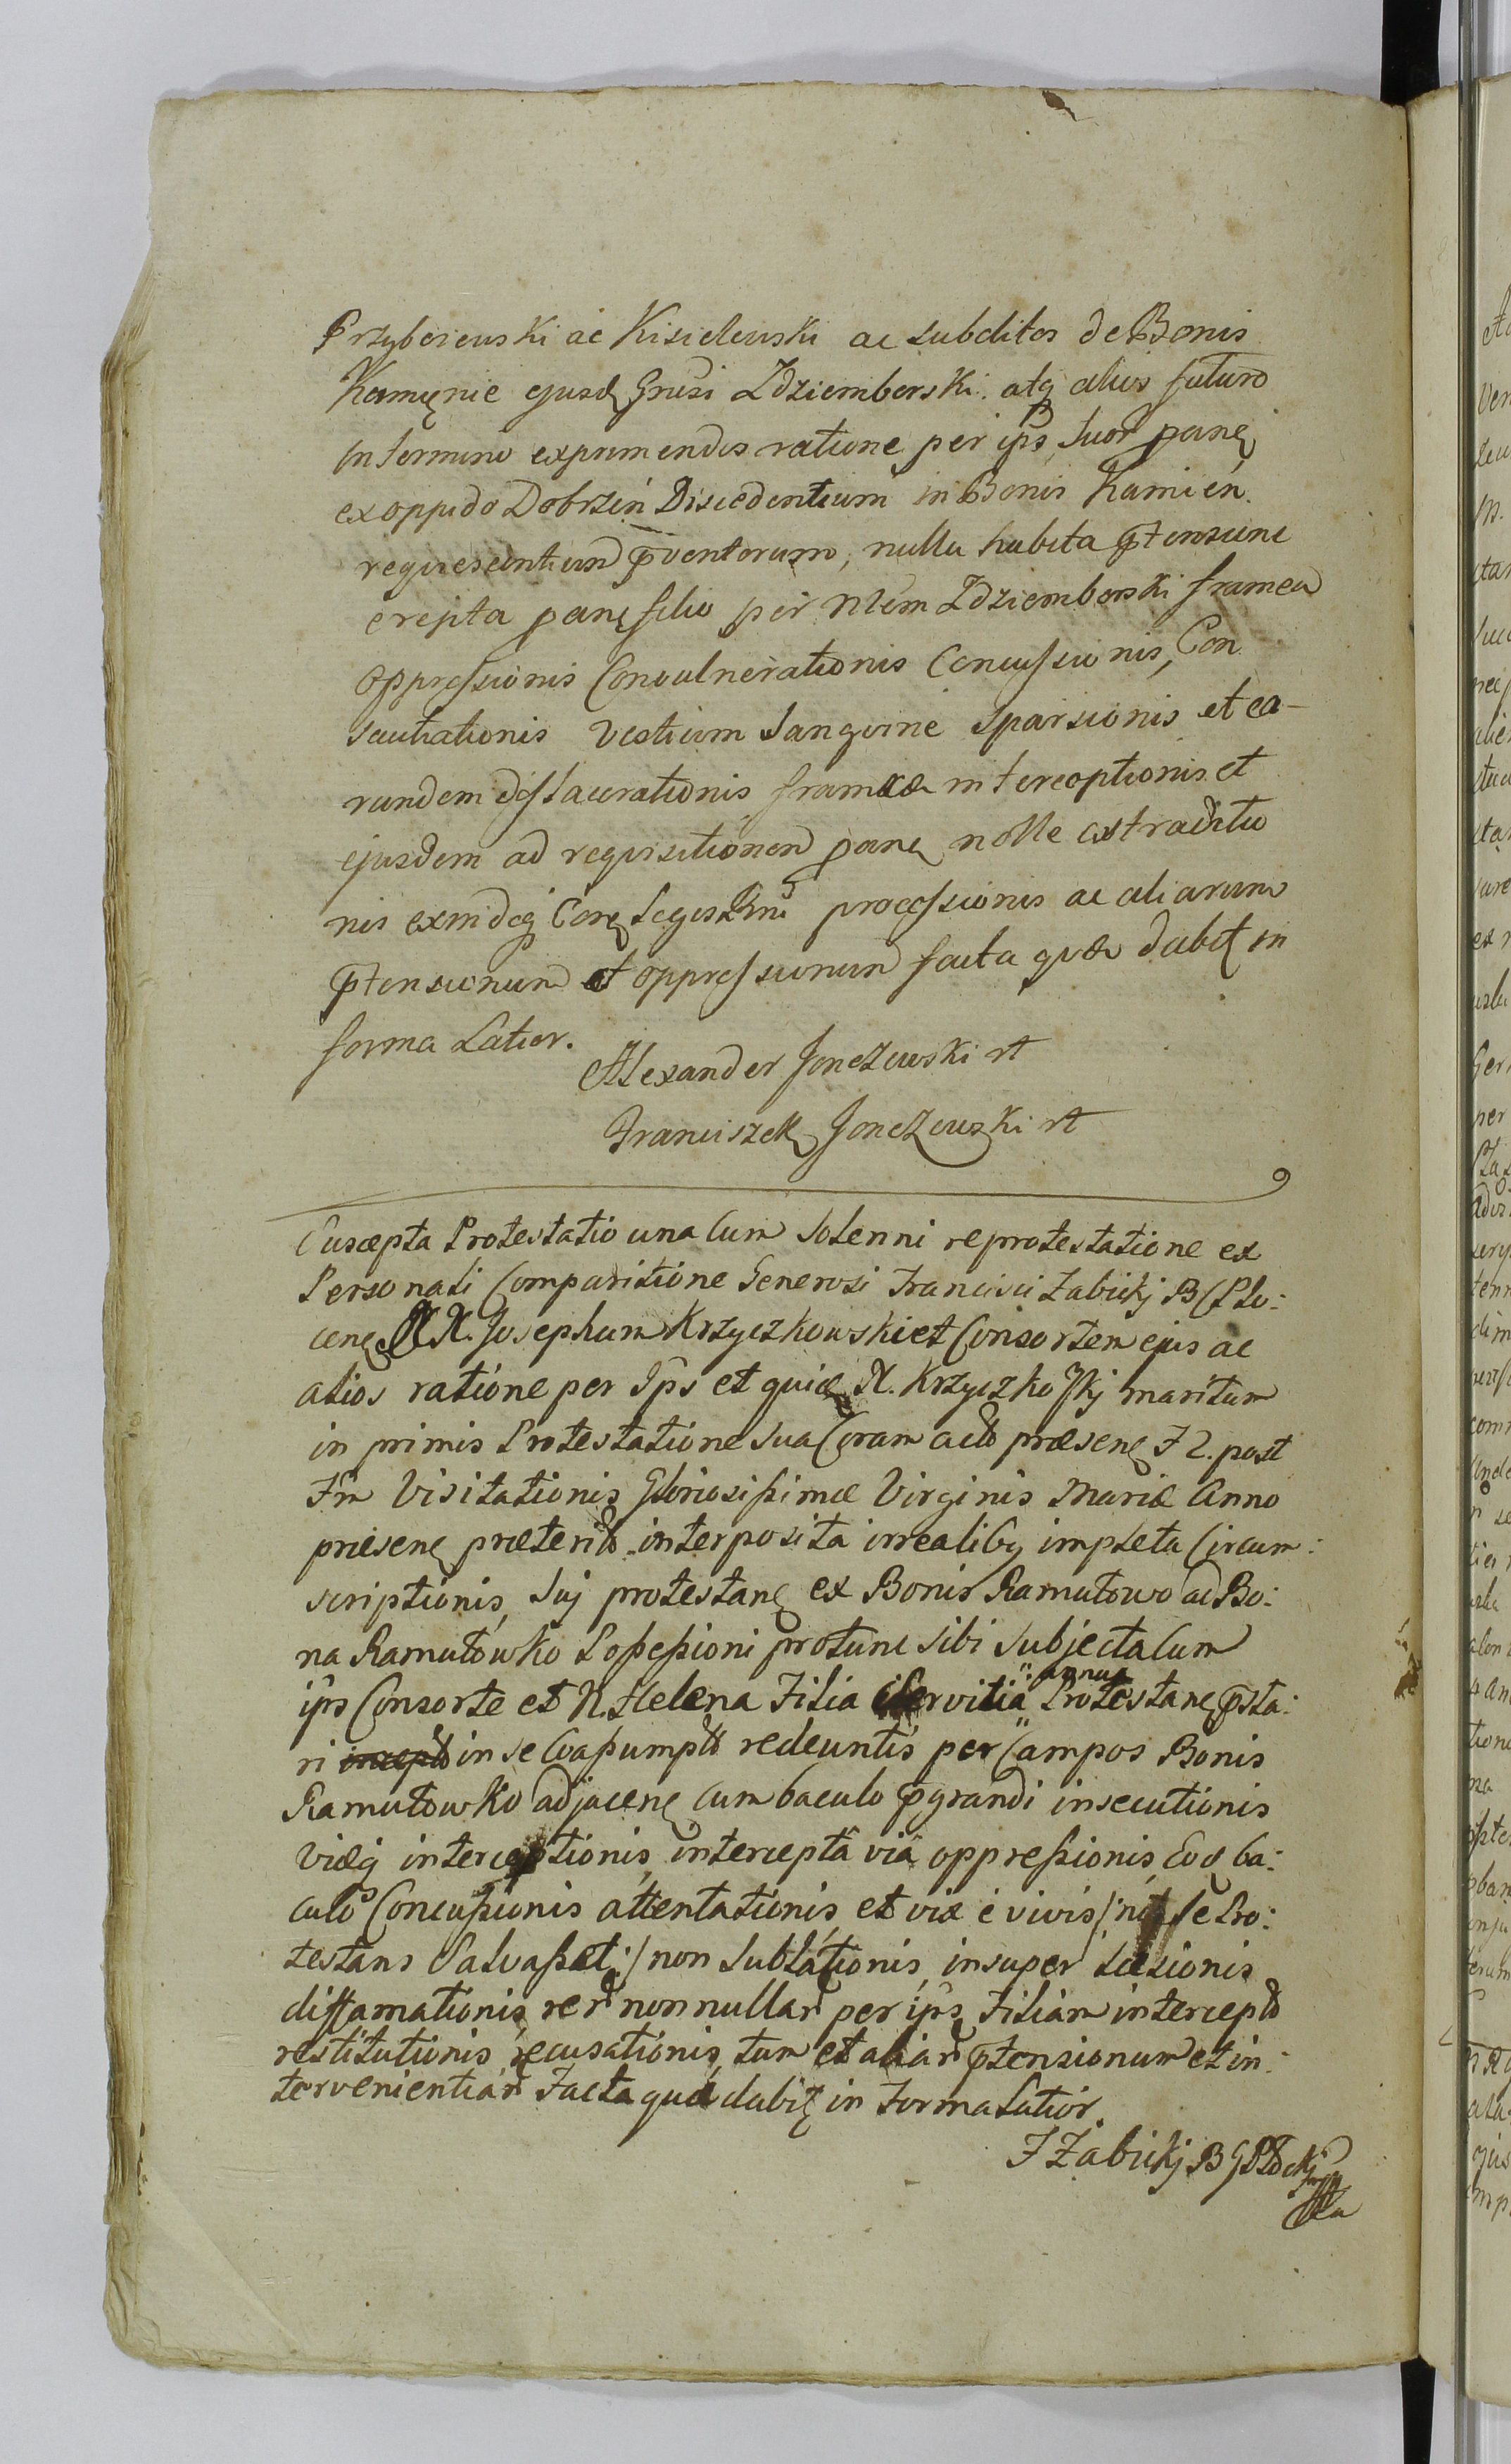 Przyborewski ac Kisielewski ac subditos de Bonis
Kamięnie ejusd Grusi Zdziemborski. atq alios futuro
in termino exprimendos ratione per ips suor pane
ex oppido Dobrzeń Discedentium in Bonis Kamien.
requiescentium pventorum, nulla habita ptensione
erepta pane filio per Nlem Zdziemborski framea
oppressionis Convulnerationis Concussionis, Con
sautiationis Vestium Sanguine sparsionis et ea-
rundem dislacerationis frameæ interceptionis et
ejusdem ad requisitionem pane nolle extraditio
nis exindeq processionis ac aliarum
ptensionum et oppressionum facta quæ dabit in
forma Latior.
Alexander Jonczewski rt
Franciszek Jonczewski rt
Suscepta Protestatio una Cum Solenni reprotestatione ex
Personali Comparitione Generosi Francisci Żabickj B C Plo:
cen NN. Josephum Krzyczkowski et Consortem ejus ac
alios ratione per Ips et quidē N. Krzyczkowskj maritum
in primis Protestatione sua Coram actis præsen F 2. post
Fm Visitationis Gloriosissimæ Virginis Mariæ Anno
præsen præterito interposita irrealibq impleta Circum:
scriptionis, Suj protestane ex Bonis Ramutowo ad Bo:
na Ramutowko Possessioni protunc sibi subjecta Cum
ips Consorte et N. Helena Filia Servitia annua Protestane psta:
ri in se Coassumptis redeuntis per Campos Bonis
Ramutowko adjacene cum baculo pgrandi insecutionis
viæq interceptionis, interceptâ viâ oppressionis, Eoq ba:
culo Concussionis attentationis, et viæ e vivis /: ni se Pro:
testans Salvasset :/ non Sublationis, insuper Læsionis
diffamationis, rer nonnullar per ips Filiam intercept
restitutionis, recusationis, tum et aliar ptensionum et in:
tervenientiar Facta quæ dabit in Forma Latior.
F Żabickj B G Płockj